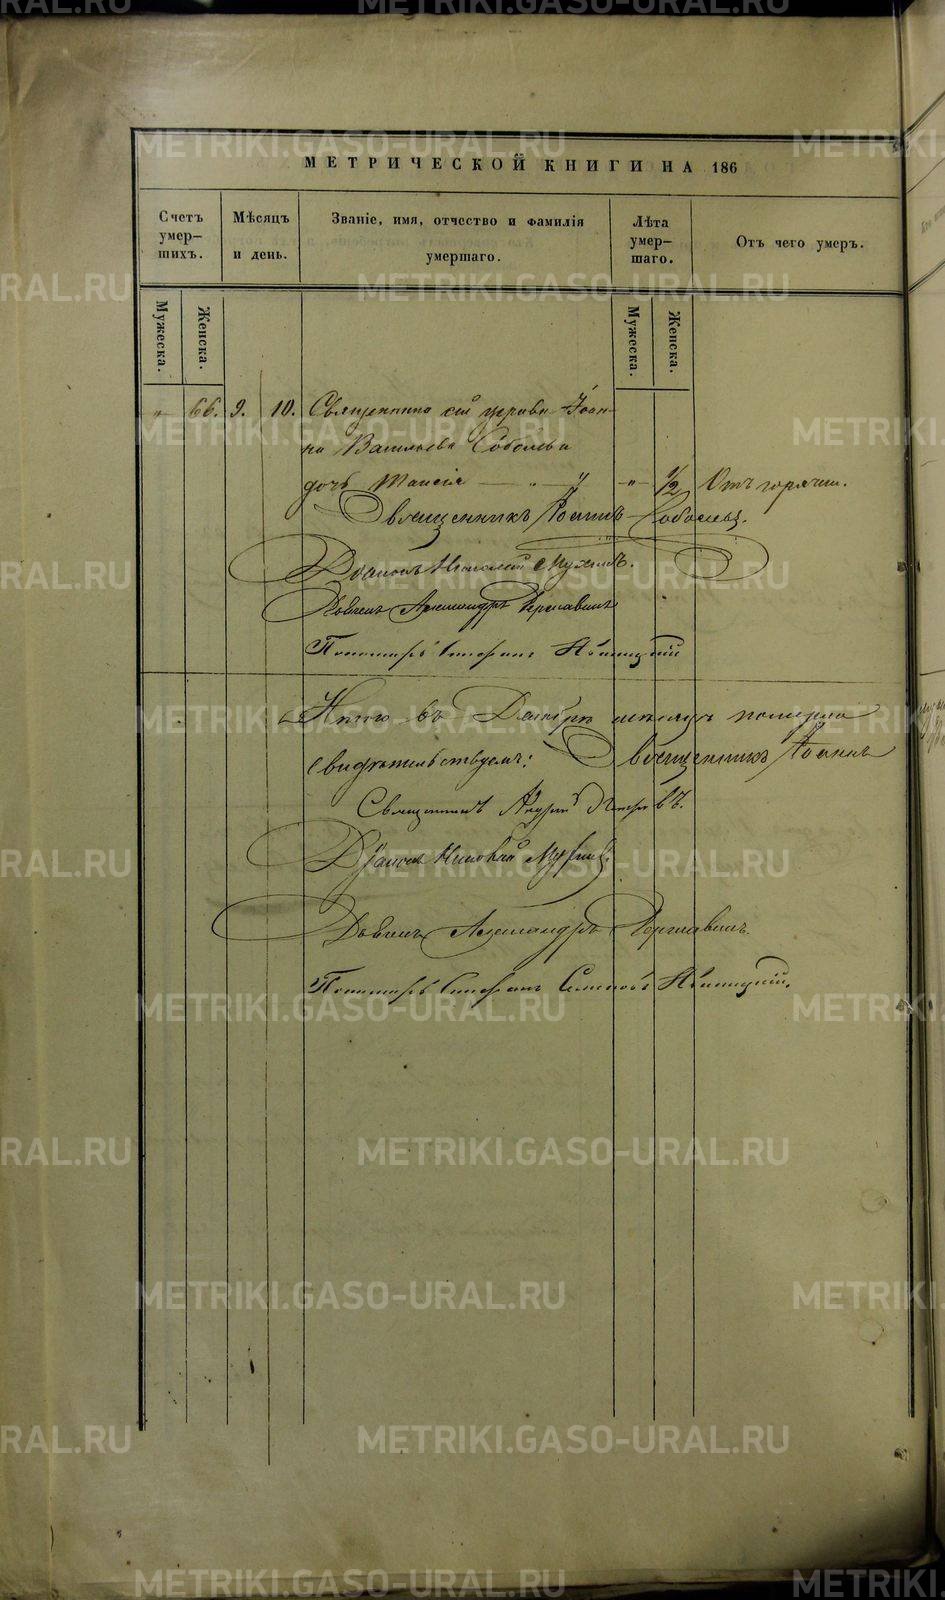 МЕТРИЧЕСКОЙ КНИГИ НА 186
Счетъ умер- шихъ.
Мѣсяцъ и день.
Званіе, имя, отчество и фамилія умершаго.
Лѣта умер- шаго.
Отъ чего умеръ.
Мужеска.
Женска.
Мужеска.
Женска.
„ 66. 9. 10. Священника сей церкви Іоан-
на Васильева Соболева
дочь Таисія — „ — „ — „ — 1/2 Отъ горячки.
Священникъ Іоаннъ Соболевъ.
Діаконъ Николай
Дьячекъ Александръ
Пономарь Стефанъ
Никто въ Декабрѣ мѣсяцѣ померло
свидѣтельствуемъ: Священникъ Іоаннъ
Священникъ Андрей
Діаконъ Николай
Дьячекъ Александръ
Пономарь Стефанъ
METRIKI.GASO-URAL.RU